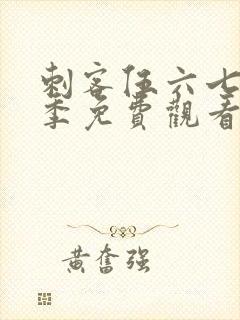 刺客伍六七
季免費觀看
黄奮强